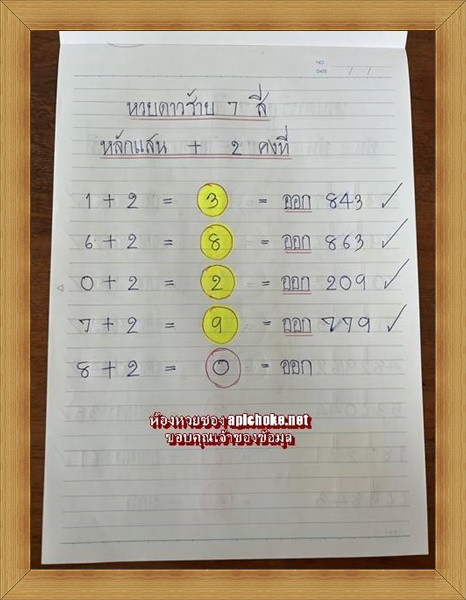 NO.
DATE / /
หวยดาวร้าย 7 สี
หลักแสน + 2 คงที่
1 + 2 = 3 = ออก 843 ✓
6 + 2 = 8 = ออก 863 ✓
0 + 2 = 2 = ออก 209 ✓
7 + 2 = 9 = ออก 779 ✓
8 + 2 = 0 = ออก
ห้องหวยซอง apichoke.net
ขอบคุณเจ้าของข้อมูล